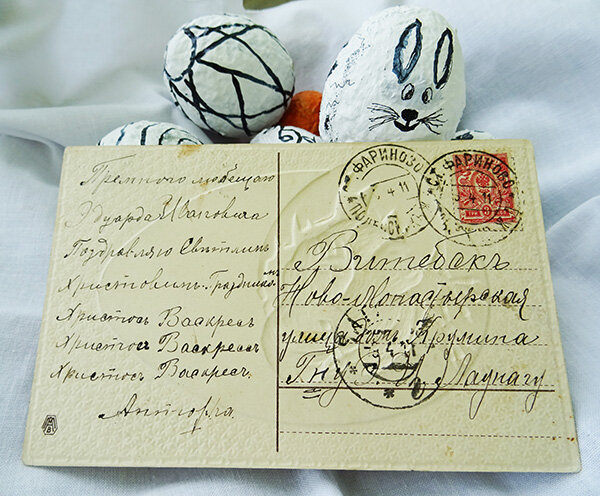 Премного мобещаю
Эдуарда Ивановича
Поздравляю Свѣтлимъ
Христовимъ Праздникомъ
Христосъ Васкресъ
Христосъ Васкресъ
Христосъ Васкресъ
ФАРИНОВО
4 11
ФАРИНОВО
4 11
Витебскъ
Ново-Монастырская
улица домъ Крумина
Гну Лаунагу